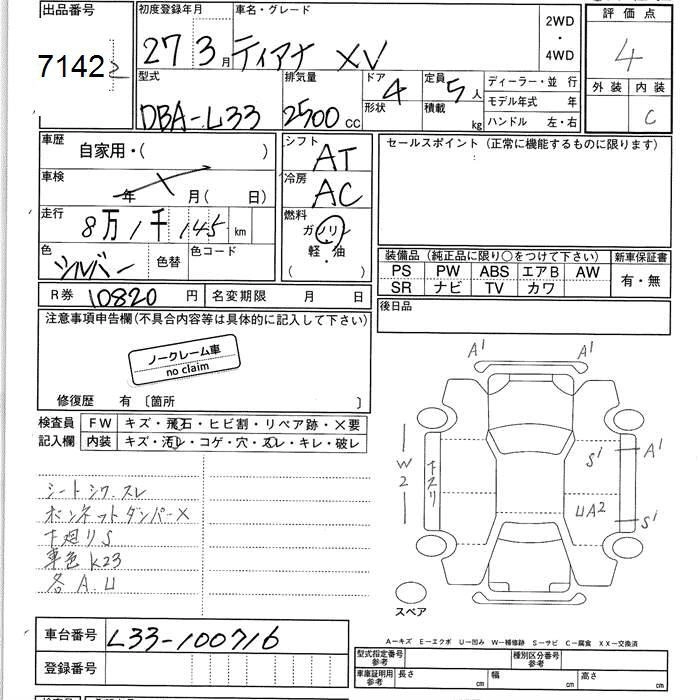 出品番号
7142
初度登録年月
27 3月
車名・グレード
ティアナ XV
2WD
・
4WD
評価点
4
外装 内装
C
型式
DBA-L33
排気量
2500 CC
ドア 4
形状
定員 5人
積載 kg
ディーラー・並 行
モデル年式 年
ハンドル 左・右
車歴
自家用・( )
車検
年 月( 日)
走行
8万1千145 km
色
シルバー
色替
色コード
シフト
AT
冷房
AC
燃料
ガソリン
軽・油
( )
セールスポイント (正常に機能するものに限ります)
装備品 (純正品に限り○をつけて下さい)
新車保証書
PS PW ABS エアB AW
SR ナビ TV カワ
有・無
後日品
R券 10820 円
名変期限 月 日
注意事項申告欄(不具合内容等は具体的に記入して下さい)
ノークレーム車
no claim
修復歴 有 〔箇所 〕
検査員
記入欄
FW キズ・飛石・ヒビ割・リペア跡・×要
内装 キズ・汚レ・コゲ・穴・スレ・キレ・破レ
シートシワ.スレ
ボンネットダンパー×
下廻りS
車色K23
各A.U
A1 A1
W2
下スリ
S1
A1
UA2
S1
スペア
車台番号
L33-100716
登録番号
A−キズ E−エクボ U−凹み W−補修跡 S−サビ C−腐食 XX−交換済
型式指定番号
参考
種別区分番号
参考
車庫証明用
参考
長さ cm
幅 cm
高さ cm